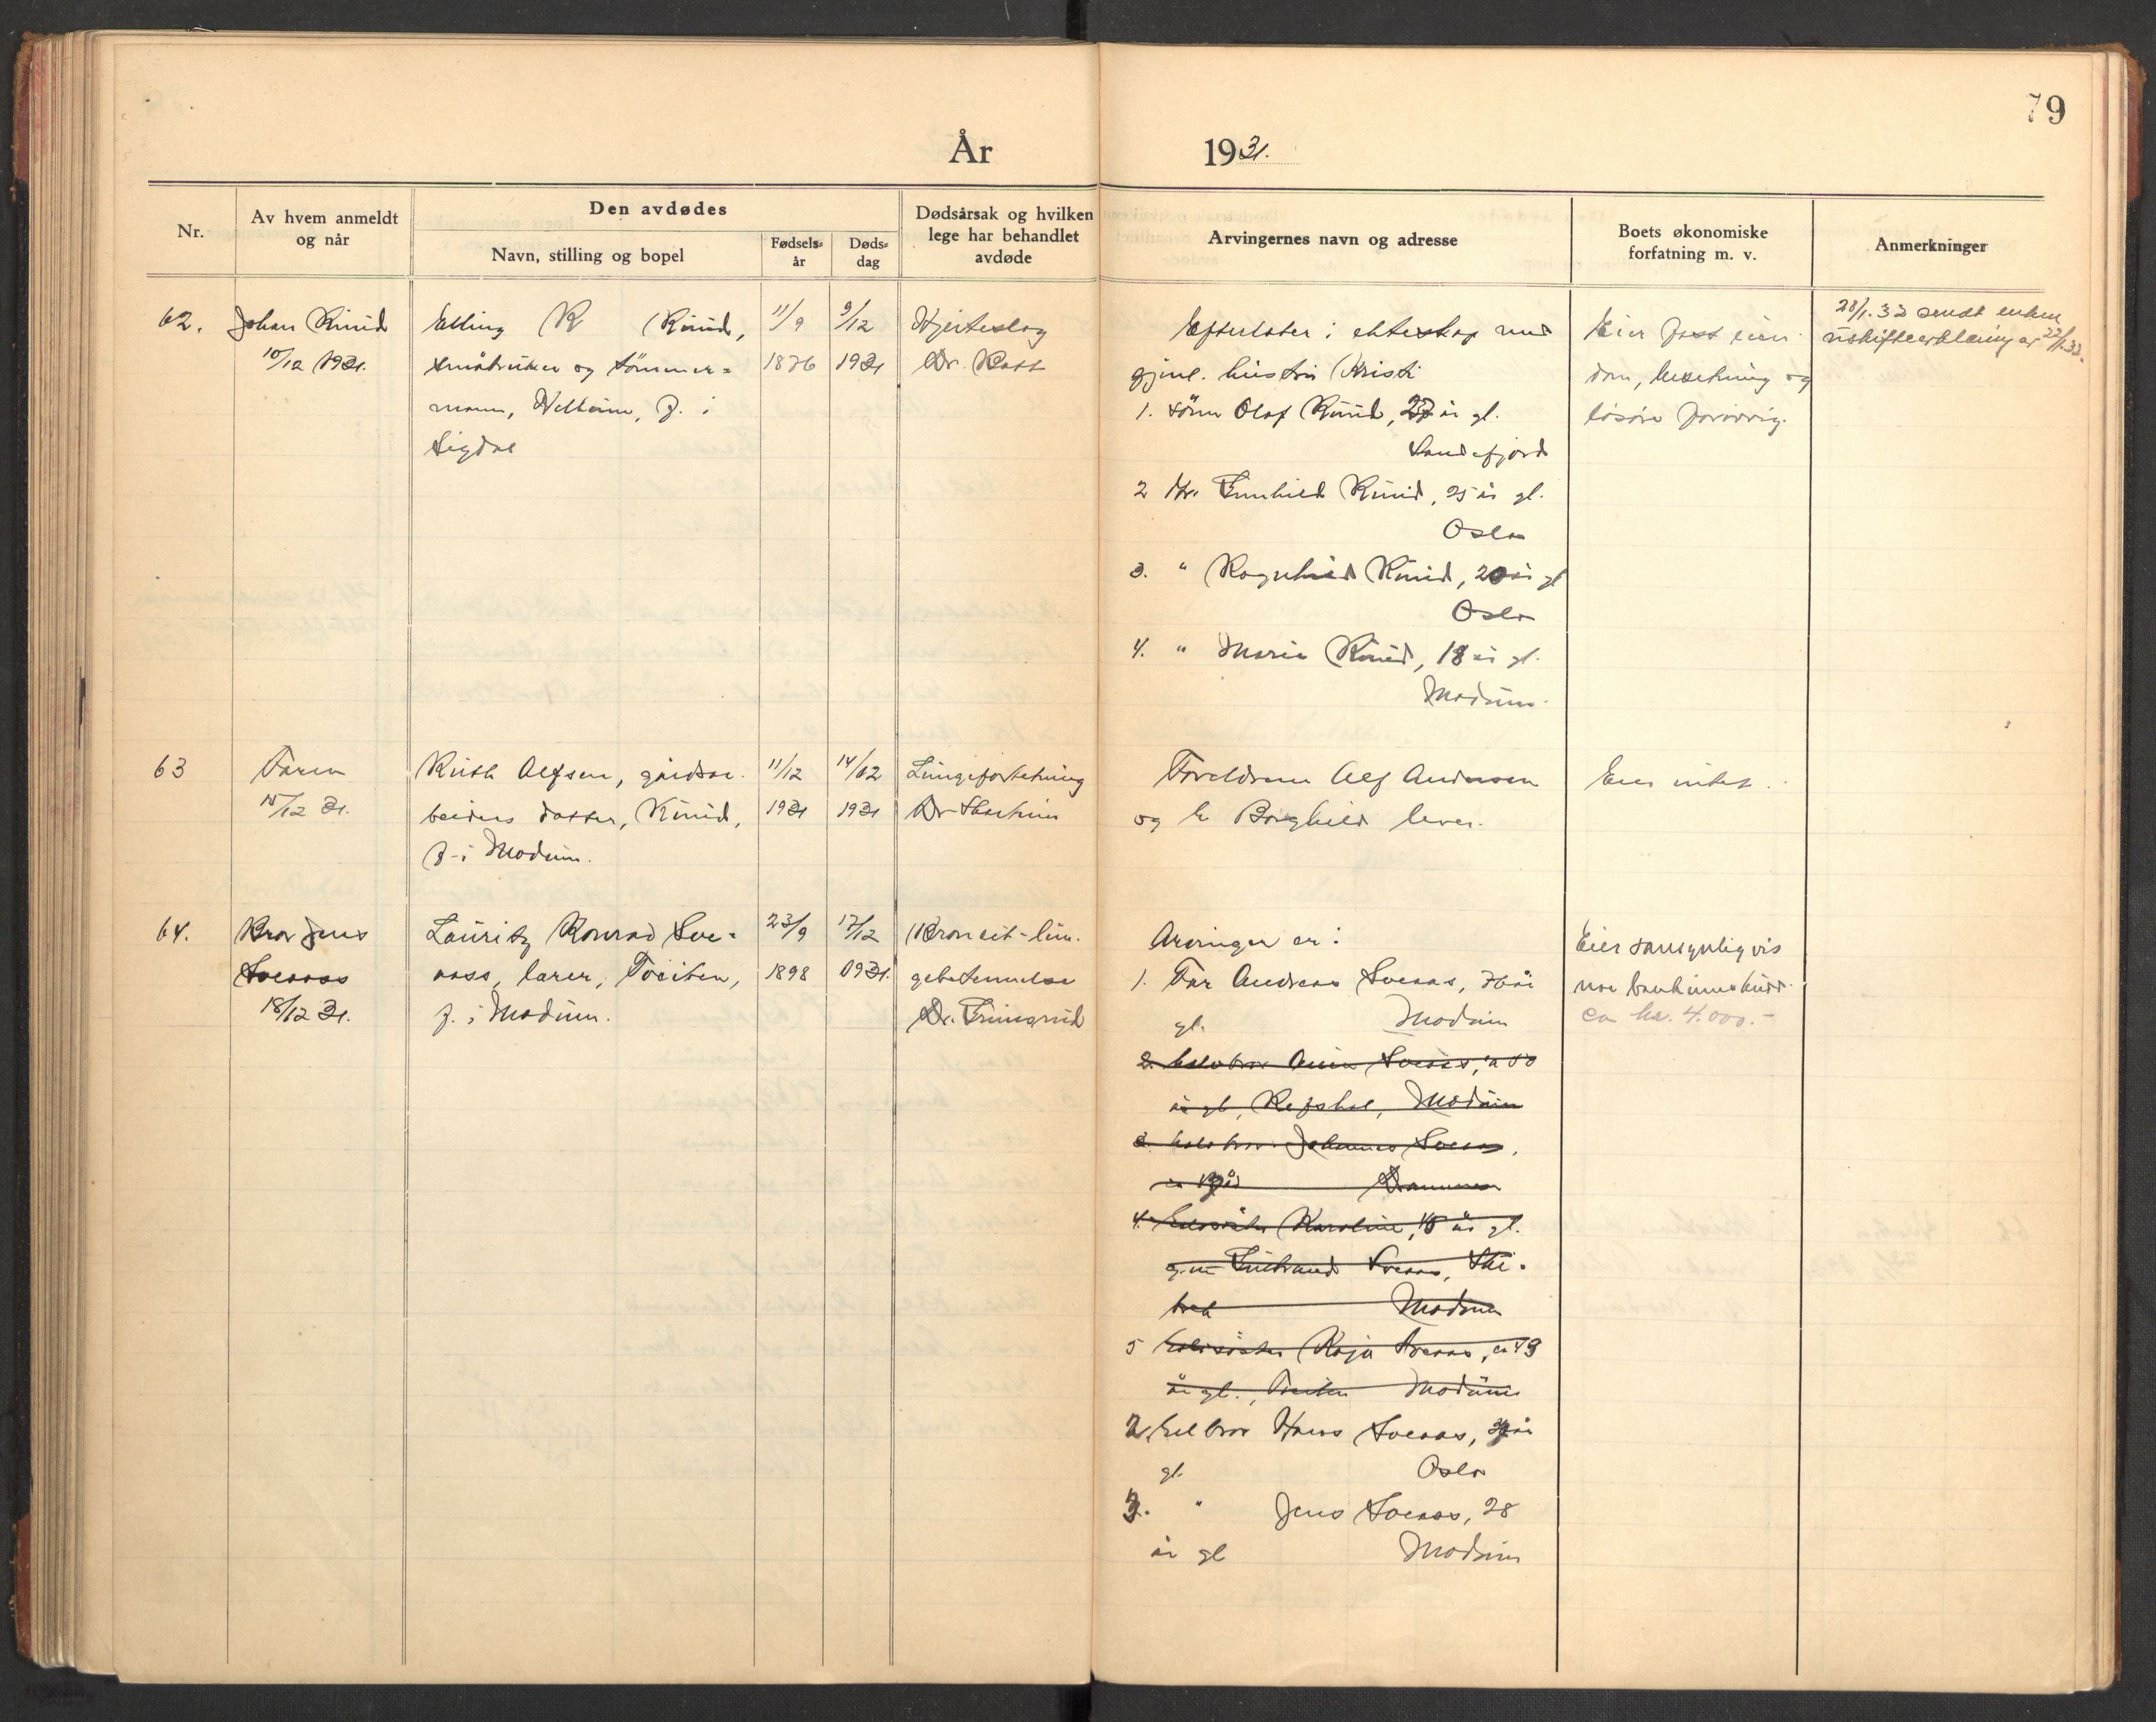 79
År 1931.
Nr.
Av hvem anmeldt
og når
Den avdødes
Navn, stilling og bopel
Fødsels-
år
Døds-
dag
Dødsårsak og hvilken
lege har behandlet
avdøde
Arvingernes navn og adresse
Boets økonomiske
forfatning m. v.
Anmerkninger
62.
Johan Kinid
10/12 1931.
Elling K Kinid,
småbruker og tömmer=
mann, f. i
Sigdal
11/9
1876
9/12
1931
Hjerteslag
Dr. Bast
Efterlater i ekteskap med
gjenl. hustru Kristi
1. sönn Olaf Kinid, 27 år gl.
Sandefjord
2 dtr. Gunhild Kinid, 25 år gl.
Oslo
3. " Ragnhild Kinid, 20 år gl
Oslo
4. " Marie Kinid, 18 år gl.
Modum.
Eier fast eien-
dom, besetning og
lösöre forövrig.
28/1.32 sendt enken
uskifteerklæring av 22/1.32.
63
Faren
15/12 31.
Ruth Alfsen, gårdsar-
beiders datter, Kinid,
f. i Modum.
11/12
1931
14/12
1931
Lungefortetning
Dr
Foreldrene Alf Andersen
og h Borghild lever.
Eier intet.
64.
Bror Jens
Sveaas
18/12 31.
Lauritz Konrad Sve=
aas, lærer,
f. i Modum.
23/9
1898
17/12
1931.
Bronkit-lun-
gebetennelse
Dr.
Arvinger er:
1. Far Andreas Sveaas, 76 år
gl. Modum
2. halvbror Sveaas, ca 50
år gl, Modum
3. halvbror Johannes Sveaas,
ca år Drammen
4. halvsöster Karoline, 45 år gl.
g.m. Gulbrand Sveaas,
Modum
5 halvsöster Kaja Sveaas, ca 43
år gl., Modum
2 hel bror Hans Sveaas, år
gl. Oslo
3. " Jens Sveaas, 28
år gl Modum
Eier sansynligvis
noe bankinnskudd.
ca kr. 4.000.-